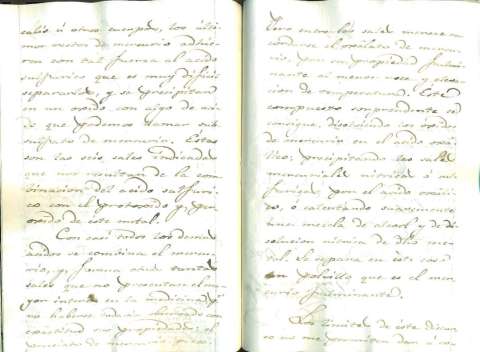 calis ú otros cuerpos, los últi-
mos restos de mercurio adhie-
ren con tal fuerza al acido
sulfurico que es muy dificil
separarlos, y se precipitan
en un oxido con algo de aci-
do que podemos llamar sub-
sulfato de mercurio. Estas
son las seis sales indicadas
que nos resultan de la com-
binacion del acido sulfuri-
co con el protoxido y per-
oxido de este metal.
Con casi todos los demas
acidos se combina el mercu-
rio, y forma otras tantas
sales que no presentan el ma-
yor interes en la medicina, y
no haberse todavia
exactitud sus propiedades: el
de mercurio
Pero entre las sales merece
el oxilato de mercu-
rio, por su propiedad fulmi-
nante al menor roce y eleva-
cion de temperatura. Este
compuesto sorprendente se
consigue, disolviendo los oxidos
de mercurio en el acido oxa-
lico; precipitando las sales
mercuriales nitrosas ó sul-
furicas, por el acido oxali-
co, ó calentando suavemente
una mezcla de alcool y de di-
solucion nitrica de dho me-
tal. Se separa en este caso
un polvillo que es el mer-
curio fulminante.
Los limites de este discur-
so no me permiten dar á